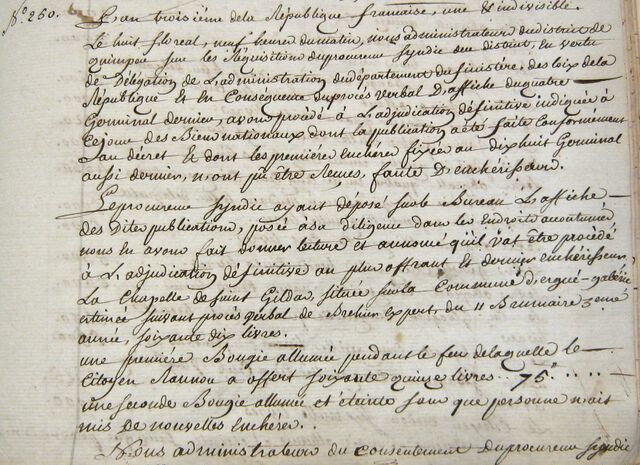 N.º 250.
L'an troisiéme dela République francaise, une & indivisible.
Le huit floreal, neuf heures dumatin, nous administrateurs dudistrict de
quimper sur les Réquisitions duprocureur Syndic du district, En vertu
de Délégation de L'administration dudépartement du finistère, des loix de la
République Et En Consequence duprocès verbal D'affiche duquatre
Germinal dernier, avons procédé à L'adjudication définitive indiquée à
cejour des Biens nationaux dont la publication a été faite Conformement
au décret & dont les premières enchères fixées au dix huit Germinal
aussi dernier, n'ont pu être Reçues, faute D'enchérisseurs.
Le procureur Syndic ayant déposé sur le Bureau L'affiche
des Dites publications, posée à sa diligence dans les Endroits accoutumés
nous En avons fait donner lecture et annoncé qu'il vat être procédé
à L'adjudication définitive au plus offrant et dernier enchérisseur,
La Chapelle de Saint Gildas, située sur la Commune d'ergué-gabéric
estimée suivant procès verbal de Brehier expert, du 11 Brumaire 3eme
année, soixante dix livres.
une première Bougie allumée pendant le feu de laquelle le
Citoyen Nannou a offert soixante quinze livres .. 75# .....
une seconde Bougie allumée et éteinte sans que personne n'ait
mis de nouvelles enchères.
Nous administrateurs du consentement du procureur syndic